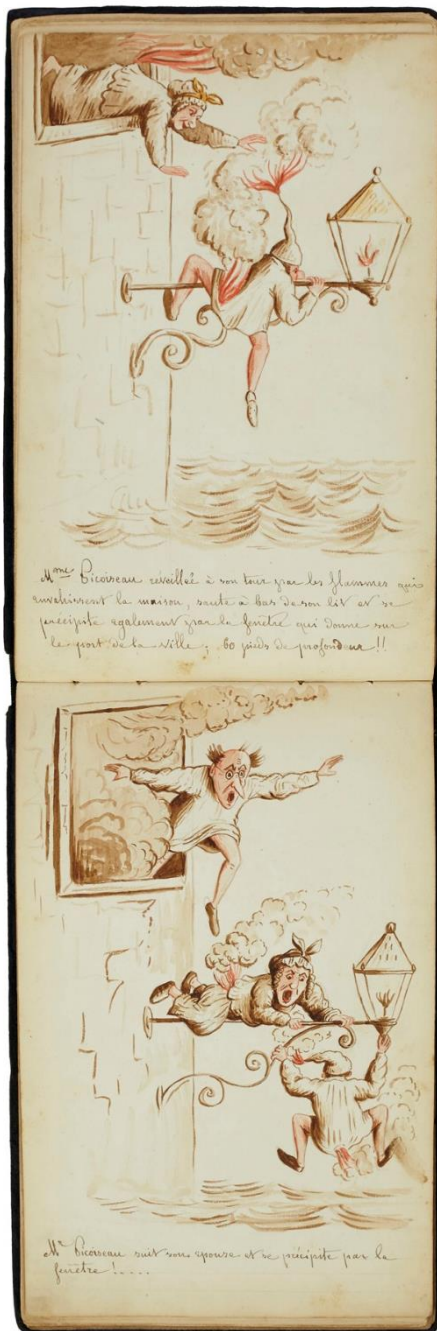 Mme Picoiseau réveillée à son tour par les flammes qui
envahissent la maison, saute à bas de son lit et se
précipite également par la fenêtre qui donne sur
le port de la ville; 60 pieds de profondeur!!
Mr Picoiseau suit son épouse et se précipite par la
fenêtre!....